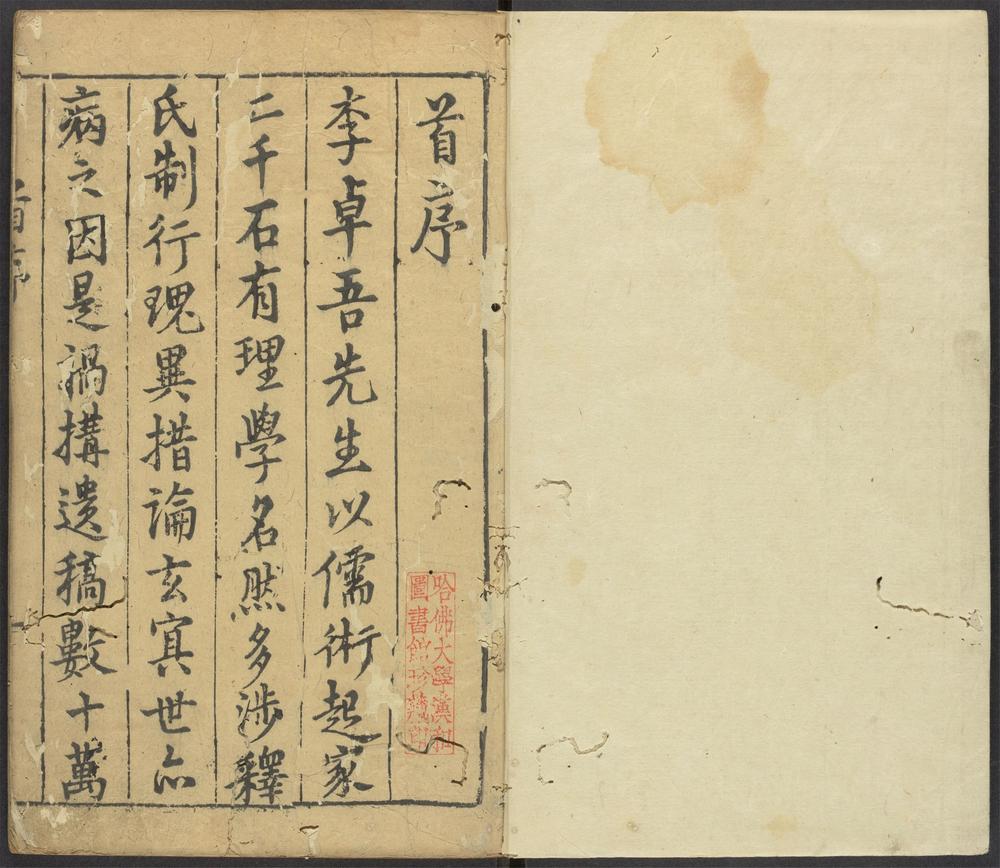 首序
李卓吾先生以儒術起家
二千石有理學名然多涉釋
氏制行瑰異措論玄寘世亦
病之因是禍搆遺稿數十萬
首序
哈佛大學漢和
圖書館珍藏印